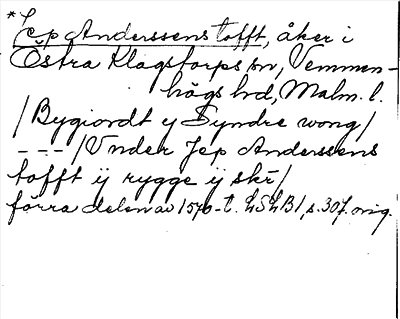 *Jep Anderssens tofft, åker i
Östra Klagstorps sn, Vemmen-
högs hd, Malm. l.
/Bygiordt y Syndre wong/
---/Vnder Jep Anderssens
tofft ij rygge ij skr/
förra delen av 1570-t. LSLB1, s. 307. orig.